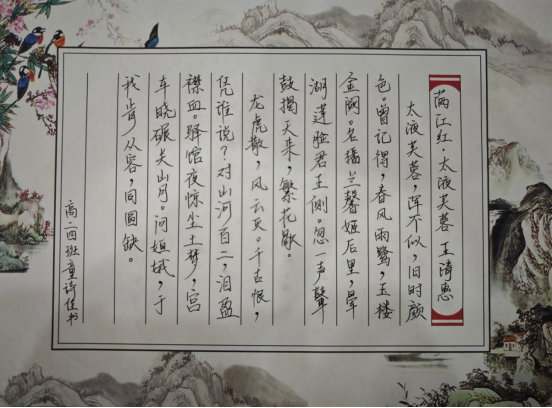 满江红·太液芙蓉 王清惠
太液芙蓉,浑不似,旧时颜
色。曾记得,春风雨露,玉楼
金阙。名播兰馨姬后里,晕
湖莲脸君王侧。忽一声鼙
鼓揭天来,繁花歇。
龙虎散,风云灭。千古恨,
凭谁说?对山河百二,泪盈
襟血。驿馆夜惊尘土梦,宫
车晓碾关山月。问姮娥,于
我肯从容,同圆缺。
高二四班童许佳书